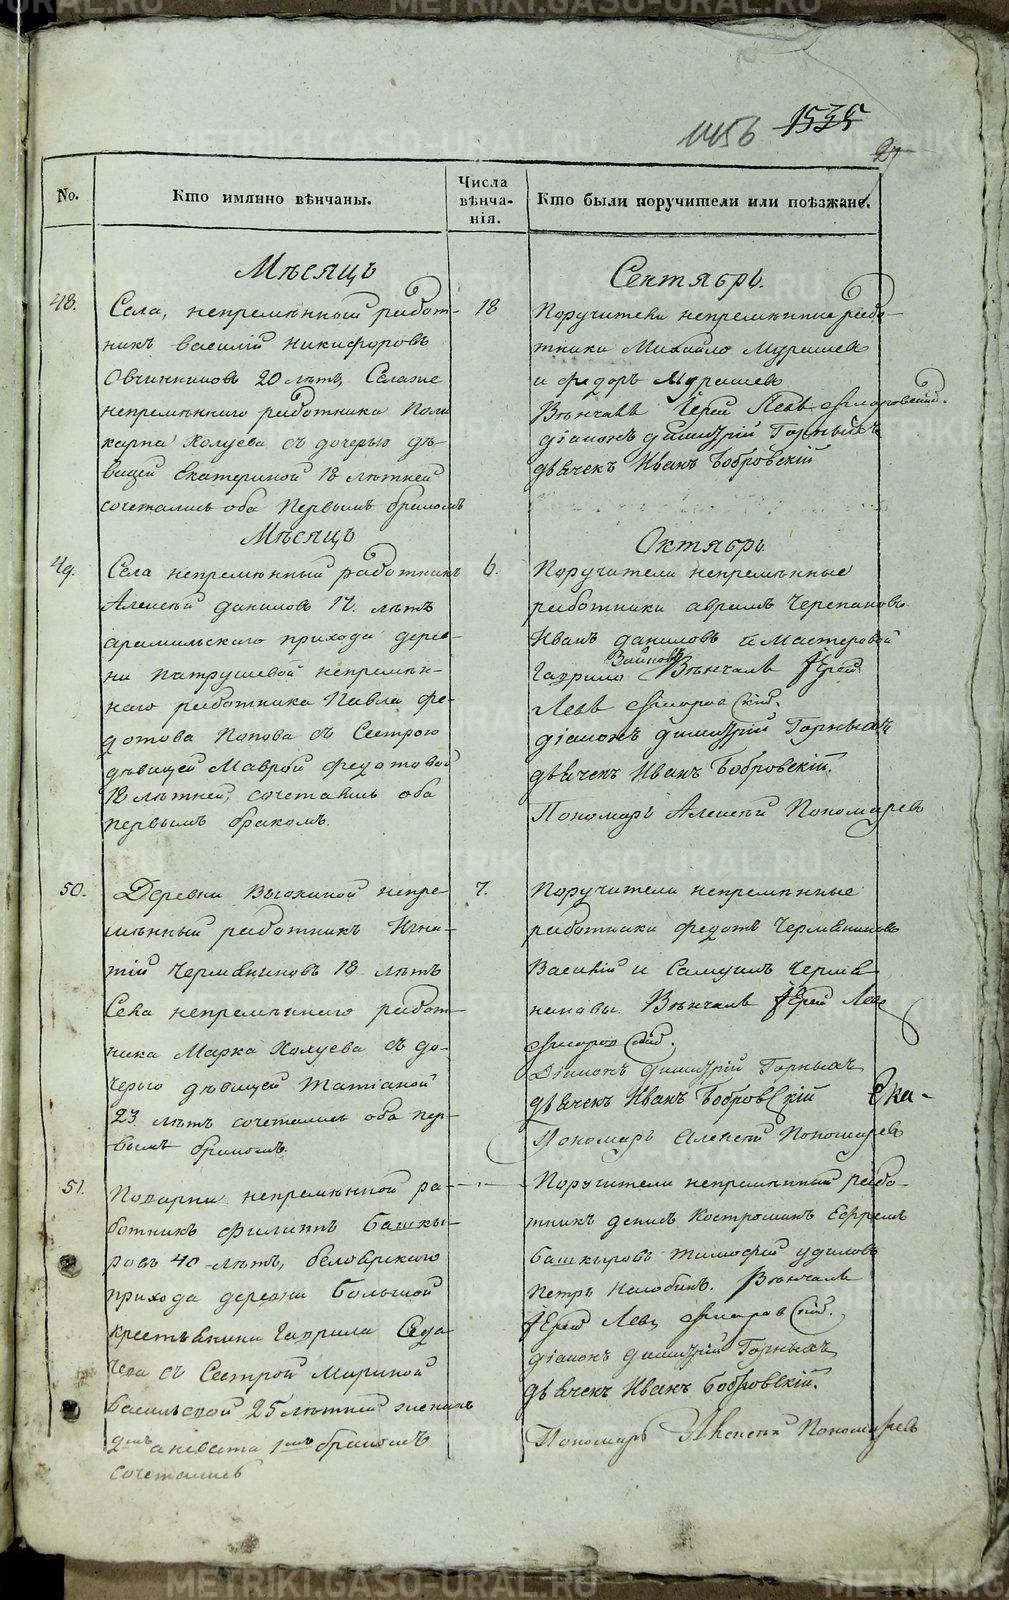 1456 1535
27
No.
Кто имянно вѣнчаны.
Числа вѣнча-нія.
Кто были поручители или поѣзжане.
Мѣсяцъ
Сентябрь.
48.
Села, непремѣнный работ-
никъ василій никифоровъ
Овчинниковъ 20 лѣтъ, Селаже
непремѣннаго работника Поли
карпа Холуева съ дочерью дѣ-
вицей Екатериной 18 лѣтней
сочетались оба Первымъ бракомъ
18
Поручители непремѣнные рабо-
тники Михайло Мурашев
и федоръ Мурашевъ
Вѣнчалъ Іерей Левъ
діаконъ димитрій Горныхъ
дьячекъ Иванъ Бобровскій
Мѣсяцъ
Октябрь
49.
Села непремѣнный работникъ
Алексѣй даниловъ 17. лѣтъ
арамильскаго прихода дерев-
ни патрушевой непремѣн-
наго работника Павла фе-
дотова Попова съ Сестрою
дѣвицей Маврой федотовой
18 лѣтней, сочетались оба
первымъ бракомъ.
6.
Поручители непремѣнные
работники аврамъ Черепановъ
Иванъ даниловъ и Мастеровой
Гаврило Вѣнчалъ Іерей
Левъ
діаконъ димитрій Горныхъ
дьячекъ Иванъ Бобровскій.
Пономарь Алексѣй Пономаревъ
50.
Деревни непре-
мѣнный работникъ Игна-
тій Чермяниновъ 18 лѣтъ
Села непремѣннаго работ-
ника Марка Холуева съ до-
черью дѣвицей Татіаной
23 лѣтъ сочетались оба пер-
вымъ бракомъ.
7.
Поручители непремѣнные
работники федотъ Чермяниновъ
Василій и Самуилъ Чермя-
ниновы. Вѣнчалъ Іерей Левъ
Діаконъ димитрій Горныхъ
дьячекъ Иванъ Бобровскій
Ека-
Пономарь Алексѣй Пономаревъ
51.
непремѣнной ра-
ботникъ филиппъ Башкы-
ровъ 40 лѣтъ, белоярскаго
прихода деревни Большой
крестьянина Гаврила Седа-
чева съ Сестрой Мариной
васильевой 25 лѣтней женихъ
2мъ а невѣста 1мъ бракомъ
сочетались
Поручители непремѣнный рабо-
тникъ денисъ Костроминъ Ефремъ
башкыровъ тимофей удиловъ
петръ Вѣнчалъ
Іерей Левъ
діаконъ димитрій Горныхъ
дьячекъ Иванъ Бобровскій.
Пономарь Алексѣй Пономаревъ
METRIKI.GASO-URAL.RU